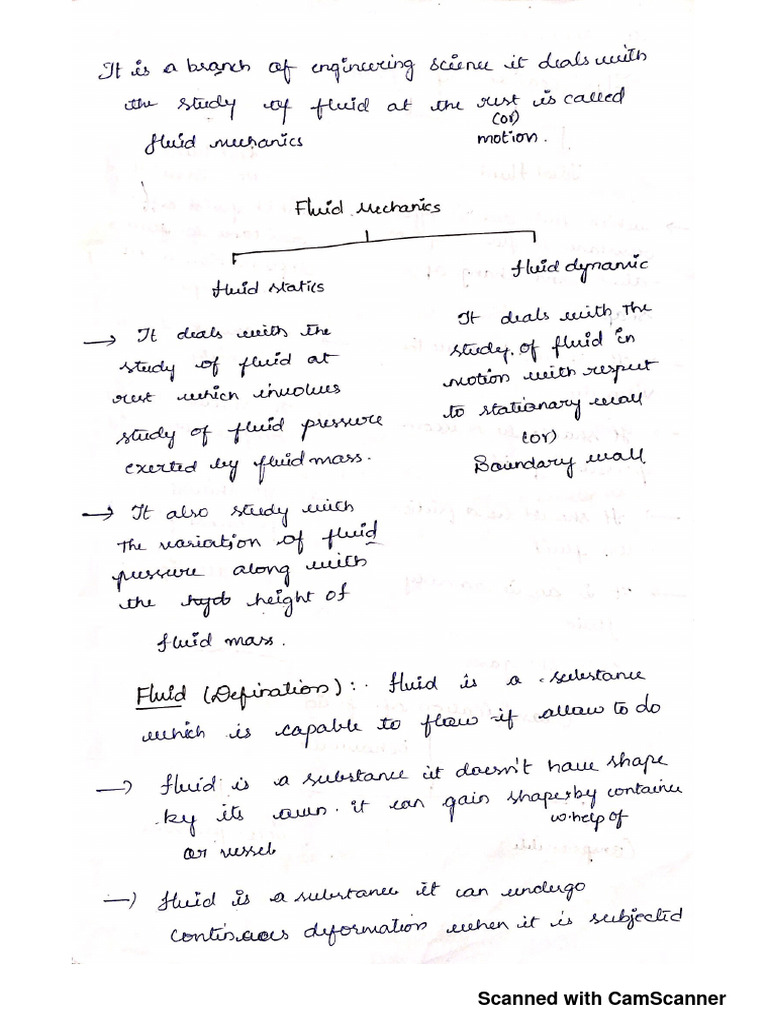 It is a branch of engineering science it deals with
the study of fluid at the rest is called
(or)
fluid mechanics motion.
Fluid Mechanics
fluid statics
fluid dynamic
→ It deals with the
study of fluid at
rest which involves
study of fluid pressure
exerted by fluid mass.
→ It also study with
the variation of fluid
pressure along with
the hydo height of
fluid mass.
It deals with the
study of fluid in
motion with respect
to stationary wall
(or)
Boundary wall
Fluid (Defination):- fluid is a substance
which is capable to flow if allow to do
→ fluid is a substance it doesn't have shape
by its own. it can gain shape by container
w.help of
or vessel
→ fluid is a substance it can undergo
continuous deformation when it is subjected
Scanned with CamScanner